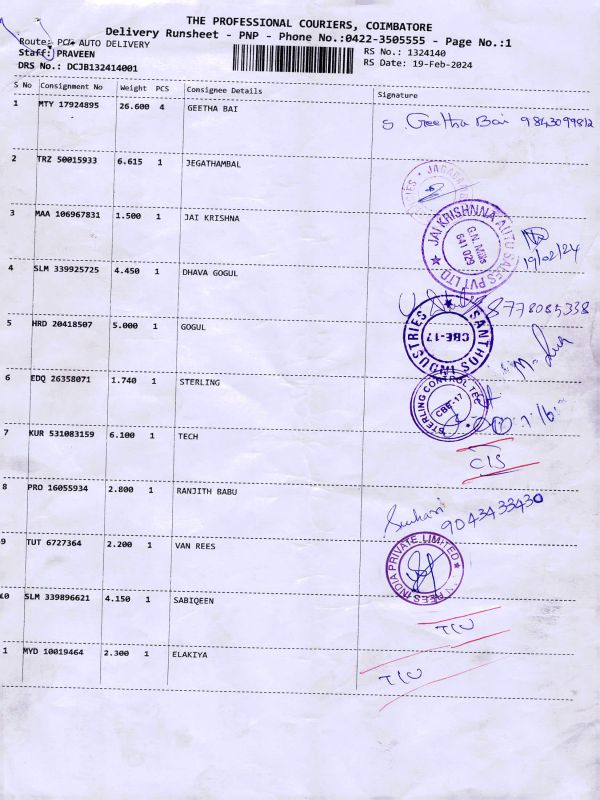 THE PROFESSIONAL COURIERS, COIMBATORE
Delivery Runsheet - PNP - Phone No.:0422-3505555 - Page No.:1
Route: PCI- AUTO DELIVERY
RS No.: 1324140
Staff: PRAVEEN
RS Date: 19-Feb-2024
DRS No.: DCJB132414001
S No Consignment No Weight PCS Consignee Details Signature
1 MTY 17924895 26.600 4 GEETHA BAI
S. Geetha Bai 9843099812
2 TRZ 50015933 6.615 1 JEGATHAMBAL
3 MAA 106967831 1.500 1 JAI KRISHNA
JAI KRISHNNA AUTO SALES PVT LTD
G.N. Mills
641 029
19/02/24
4 SLM 339925725 4.450 1 DHAVA GOGUL
8778085338
5 HRD 20418507 5.000 1 GOGUL
SANTHOS INDUSTRIES
CBE-17
6 EDQ 26358071 1.740 1 STERLING
STERLING CONTROL TEC
CBE-17
7 KUR 531083159 6.100 1 TECH
C/S
8 PRO 16055934 2.800 1 RANJITH BABU
9043433430
9 TUT 6727364 2.200 1 VAN REES
REES INDIA PRIVATE LIMITED
10 SLM 339896621 4.150 1 SABIQEEN
1 MYD 10019464 2.300 1 ELAKIYA